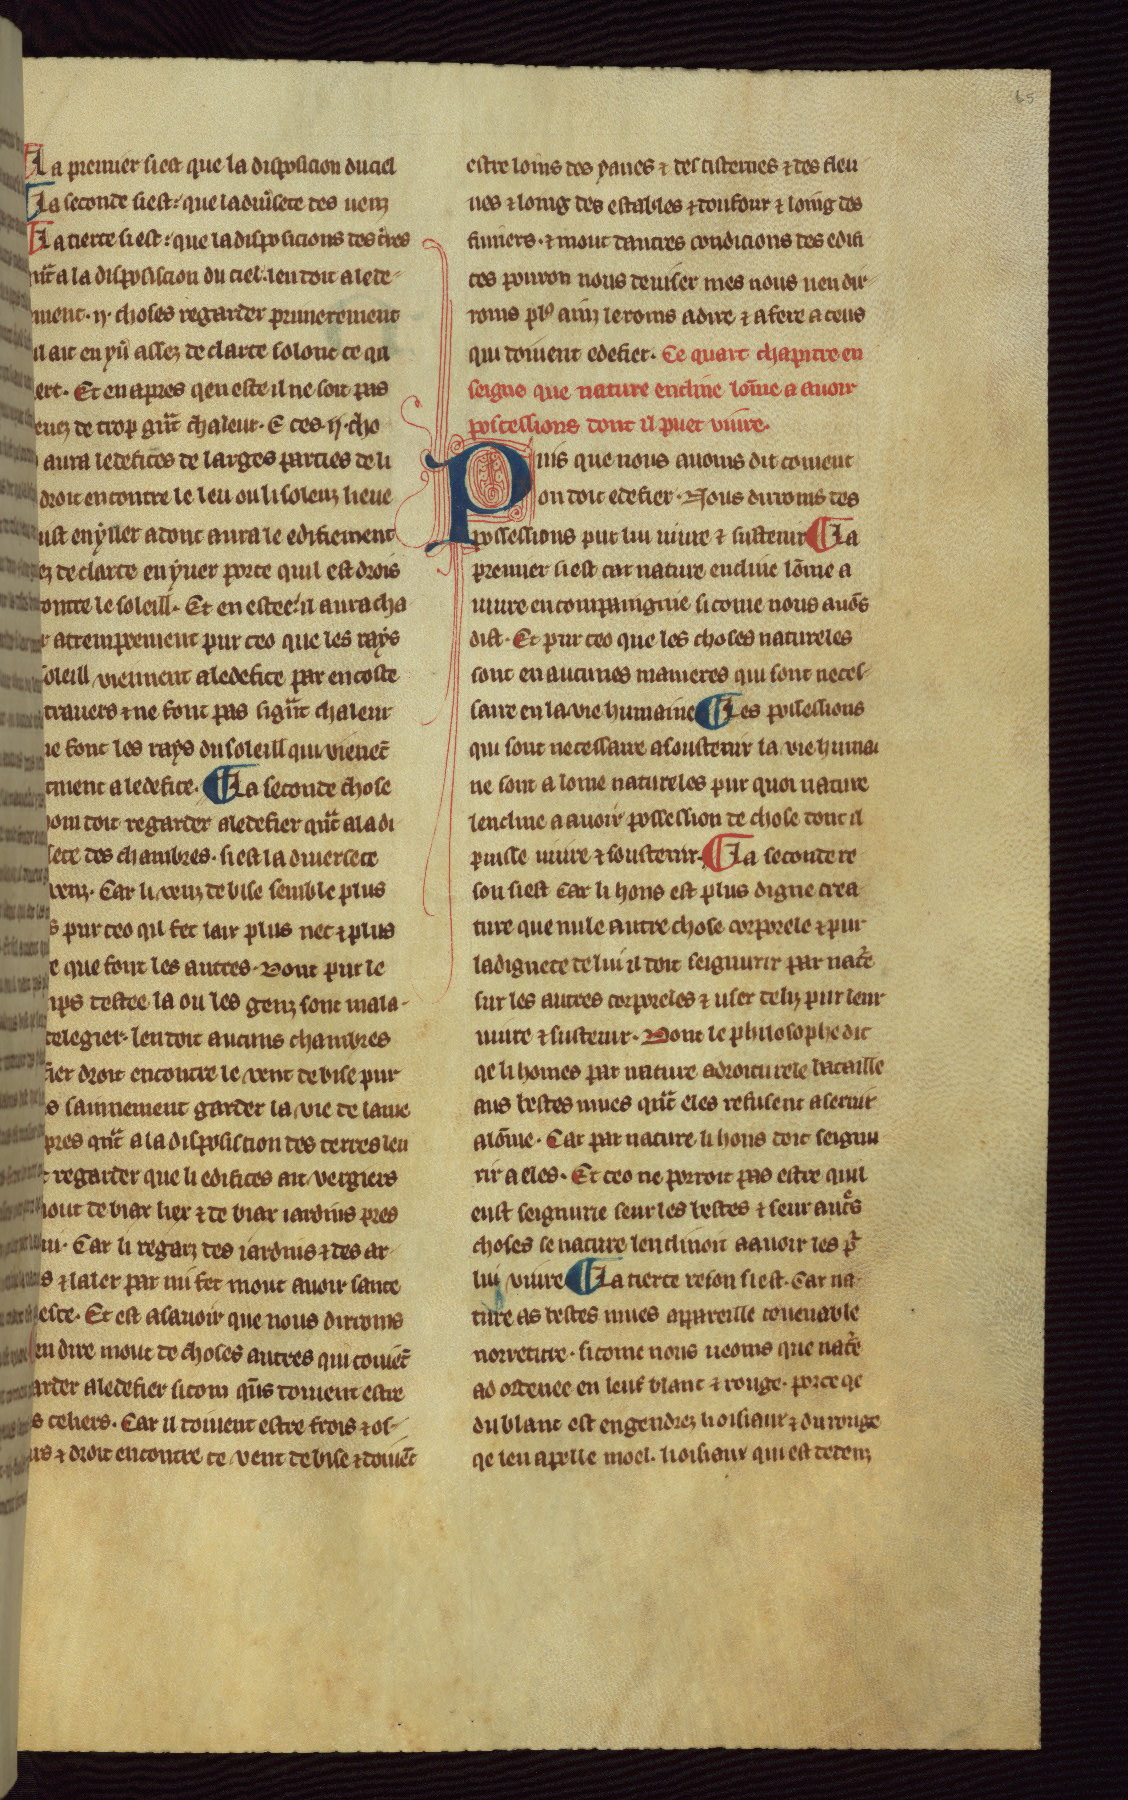 65
La premier si est que la disposicion du ciel
La seconde si est: que la diu̾sete des uenz
La tierce si est: que la disposicions des t̾res
a la disposiscion du ciel. len doit a lede-
ment. ij. choses regarder primerement
il ait en yu̾ assez de clarte solonc ce qu
ert. Et en apres qen este il ne soit pas
de trop gñt chaleur. E ces ij. cho
aura ledefices de larges parties de li
droit encontre le leu ou li soleuz lieue
en yller adonc aura le edifiement
ez de clarte en yuer porce quil est drois
contre le soleill. Et en estee: il aura cha
r attemprement pur ceo que les rays
soleill viennent a ledefice par en coste
trauers ⁊ ne font pas si gñt chaleur
ne font les rays du soleill qui vienēt
tment a ledefice. La seconde chose
hom doit regarder a ledefier qñt a la di
sete des chambres. si est la diuersete
venz. Car li venz de bise semble plus
s pur ceo qil fet lair plus net ⁊ plus
e que font les autres. Dont pur le
mps destee la ou les genz sont mala-
de legier. len doit aucuns chambres
fier droit encontre le vent de bise pur
s sainnement garder la vie de lame
pres qñt a la disposiscion des terres len
t regarder que li edifices ait vergiers
mout de biax lier ⁊ de biax iardins pres
lui. Car li regarz des iardins ⁊ des ar-
s ⁊ laler par mi fet mout auoir sante
leesce. Et est asauoir que nous diroms
en dire mout de choses autres qui couiēt
garder a ledefier si com qñs doiuent estre
s celiers. Car il doiuent estre frois ⁊ os-
⁊ droit encontre ce vent de bise ⁊ doiuēt
estre loins des yaues ⁊ des cisternes ⁊ des fleu
ues ⁊ loing des estables ⁊ dou four ⁊ loing des
fumiers. ⁊ mout dautres condicions des edifi
ces pouron nous deuiser mes nous nen dir-
roms plꝰ ainz leroms a dire ⁊ a fere a ceus
qui doiuent edefier. Ce quart chapitre en
seigne que nature encline lōme a auoir
poscessions dont il puet viure.
Puis que nous auoms dit coment
on doit edefier. Nous diroms des
possessions pur lui uiure ⁊ sustenir La
premier si est car nature encline lōme a
uiure en compaingnie si come nous auōs
dist. Et pur ceo que les choses natureles
sont en aucunes manieres qui sont neces-
saire en la vie humaine Les possessions
qui sont necessaire a soustenir la vie humai
ne sont a lome natureles pur quoi nature
lencline a auoir possession de chose dont il
puisse uiure ⁊ soustenir. La seconde re
son si est Car li hons est plus digne crea
ture que nule autre chose corporele ⁊ pur
la dignete de lui il doit seignurir par nat̾e
sur les autres corporeles ⁊ user delz pur leur
uiure ⁊ sustenir. Dont le philosophe dit
qe li homes par nature a droiturele bataille
aus bestes mues qñt eles refusent a seruir
a lōme. Car par nature li hons doit seignu
rir a eles. Et ceo ne porroit pas estre quil
eust seignurie seur les bestes ⁊ seur aut̾s
choses se nature lenclinoit a auoir les p̄
lui viure La tierce reson si est. Car na-
ture as bestes mues appareille couenable
norreture. si come nous ueoms que nat̾e
ad ordenee en leuf blanc ⁊ rouge. porce qe
du blanc est engendrez li oisiaux ⁊ du rouge
qe len apelle moel. li oisiaux qui est dedenz